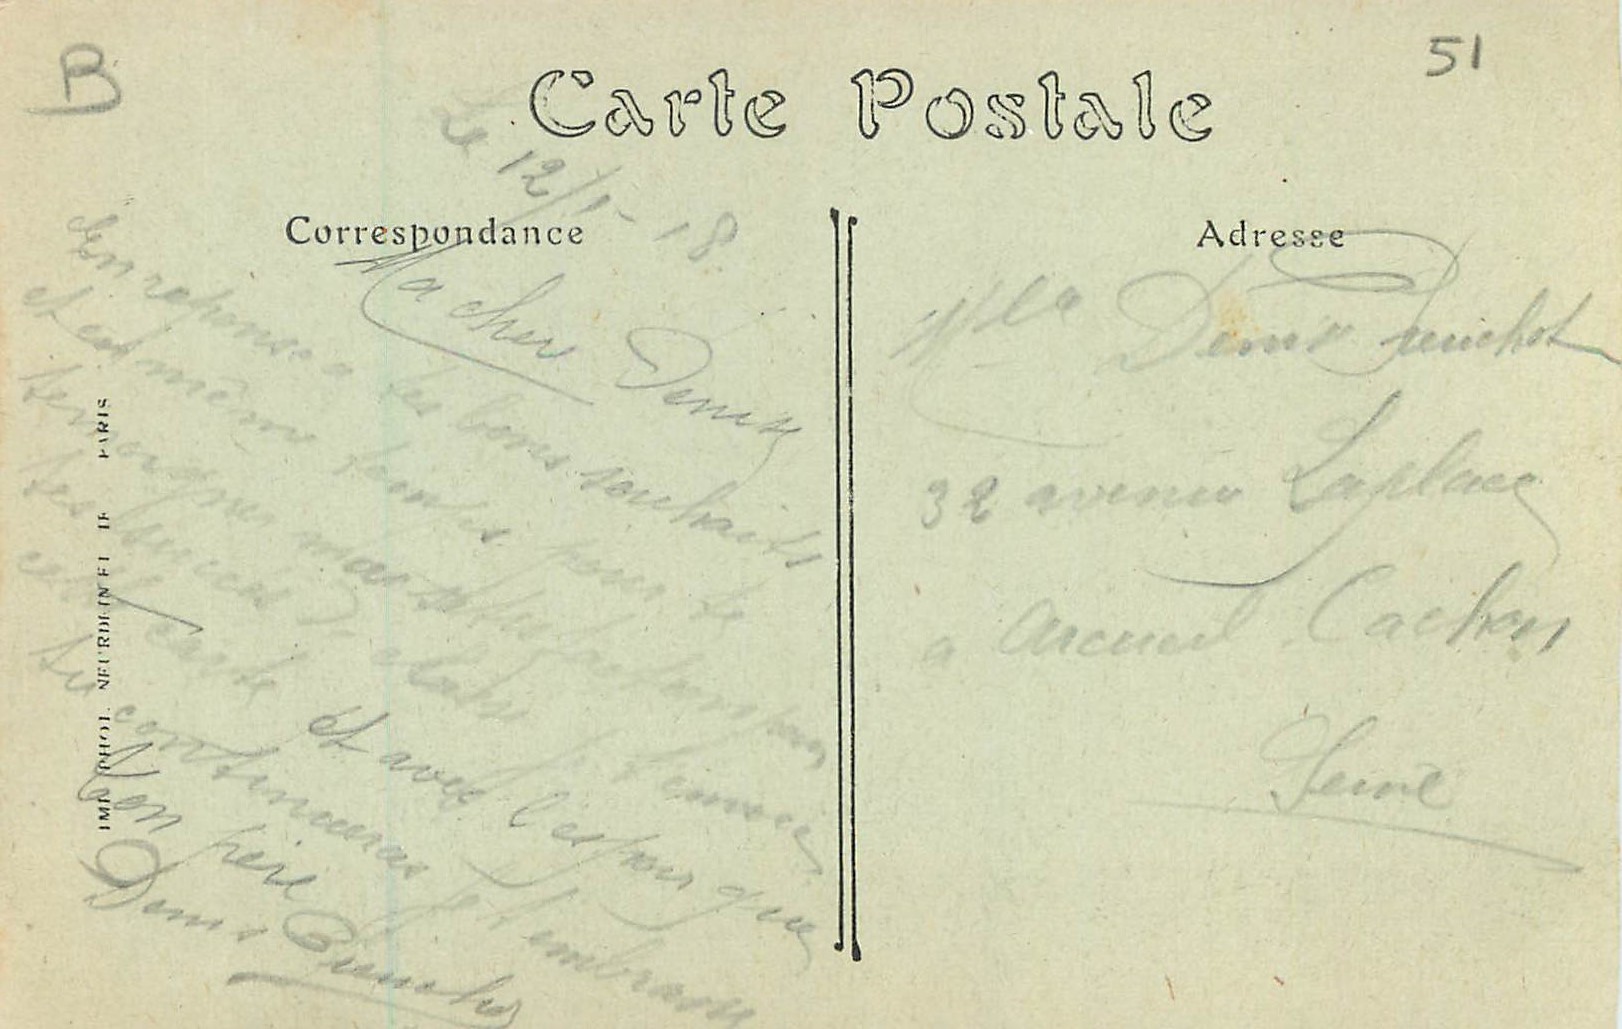 B
51
Carte Postale
Correspondance
Adresse
Le 12/1-18
Ma cher Denise
En reponse a tes bons souhaits
et en même temps pour te
temoigner ma satisfaction pour
tes succes de classe je t'envoie
cette carte et avec l'espoir que
tu continueras je t'embrasse
ton père
Denis
Mlle Denise
32 avenue Laplace
a Arcueil Cachan
Seine
IMP. PHOT. NEURDEIN ET Cie PARIS